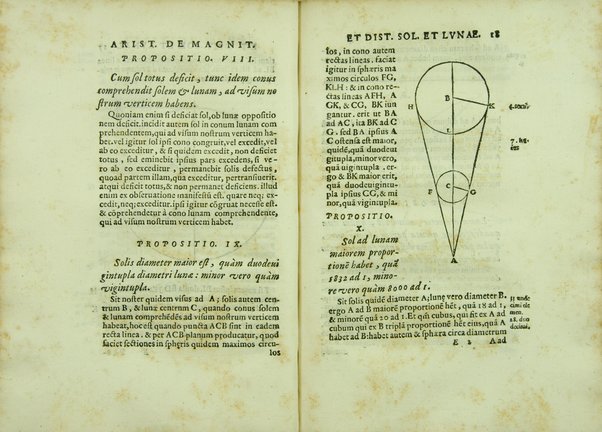 ARIST. DE MAGNIT.
PROPOSITIO. VIII.
Cum sol totus deficit, tunc idem conus
comprehendit solem & lunam, ad visum no
strum verticem habens.
Quoniam enim si deficiat sol, ob lunæ oppositio
nem deficit. incidit autem sol in conum lunam com
prehendentem, qui ad visum nostrum verticem ha-
bet. vel igitur sol ipsi cono congruit, vel excedit, vel
ab eo exceditur, & si quidem excedit, non deficiet
totus, sed eminebit ipsius pars excedens, si ve-
ro ab eo exceditur, permanebit solis defectus,
quoad partem illam, quâ exceditur, pertransierit.
atqui deficit totus, & non permanet deficiens. illud
enim ex obseruatione manifestũ est. quare neq; ex-
cedit, neq; exceditur. ipsi igitur cõgruat necesse est.
& cõprehendetur à cono lunam comprehendente,
qui ad visum nostrum verticem habet.
PROPOSITIO. IX.
Solis diameter maior est, quàm duodeui
gintupla diametri lunæ: minor vero quàm
vigintupla.
Sit noster quidem visus ad A; solis autem cen-
trum B, & lunæ centrum C, quando conus solem
& lunam comprehẽdẽs ad visum nostrum verticem
habeat, hoc est quando puncta ACB sint in eadem
recta linea. & per ACB planum producatur, quod
faciet sectiones in spheris quidem maximos circu-
los
ET DIST. SOL. ET LVNAE. 18
los, in cono autem
rectas lineas. faciat
igitur in sphæris ma
ximos circulos FG,
KLH: & in cono re-
ctas lineas AFH, A
GK, & CG, BK iun
gantur. erit ut BA
ad AC, ita BK ad C
G: sed BA ipsius A
C ostensa est maior,
quidẽ, quâ duodeui
gitupla, minor vero,
quâ uigintupla. er-
go & BK maior erit,
quàm duodeuigintu
pla ipsius CG, & mi
nor, quâ vigintupla.
PROPOSITIO.
X.
Sol ad lunam
maiorem propor-
tionẽ habet, quâ
5832 ad 1, mino-
re vero quàm 8000 ad 1.
Sit solis quidẽ diameter A; lunę vero diameter B,
ergo A ad B maiorẽ proportionẽ hét, quâ 18 ad 1,
et minorẽ quâ 20 ad 1. Et qñ cubus, qui fit ex A ad
cubum qui ex B triplâ proportionẽ hét eius, quâ A
habet ad B: habet autem & sphæra circa diametrum
E 2 A ad
B
H
K
L
C
F
G
A
4. sexti.
7. huius